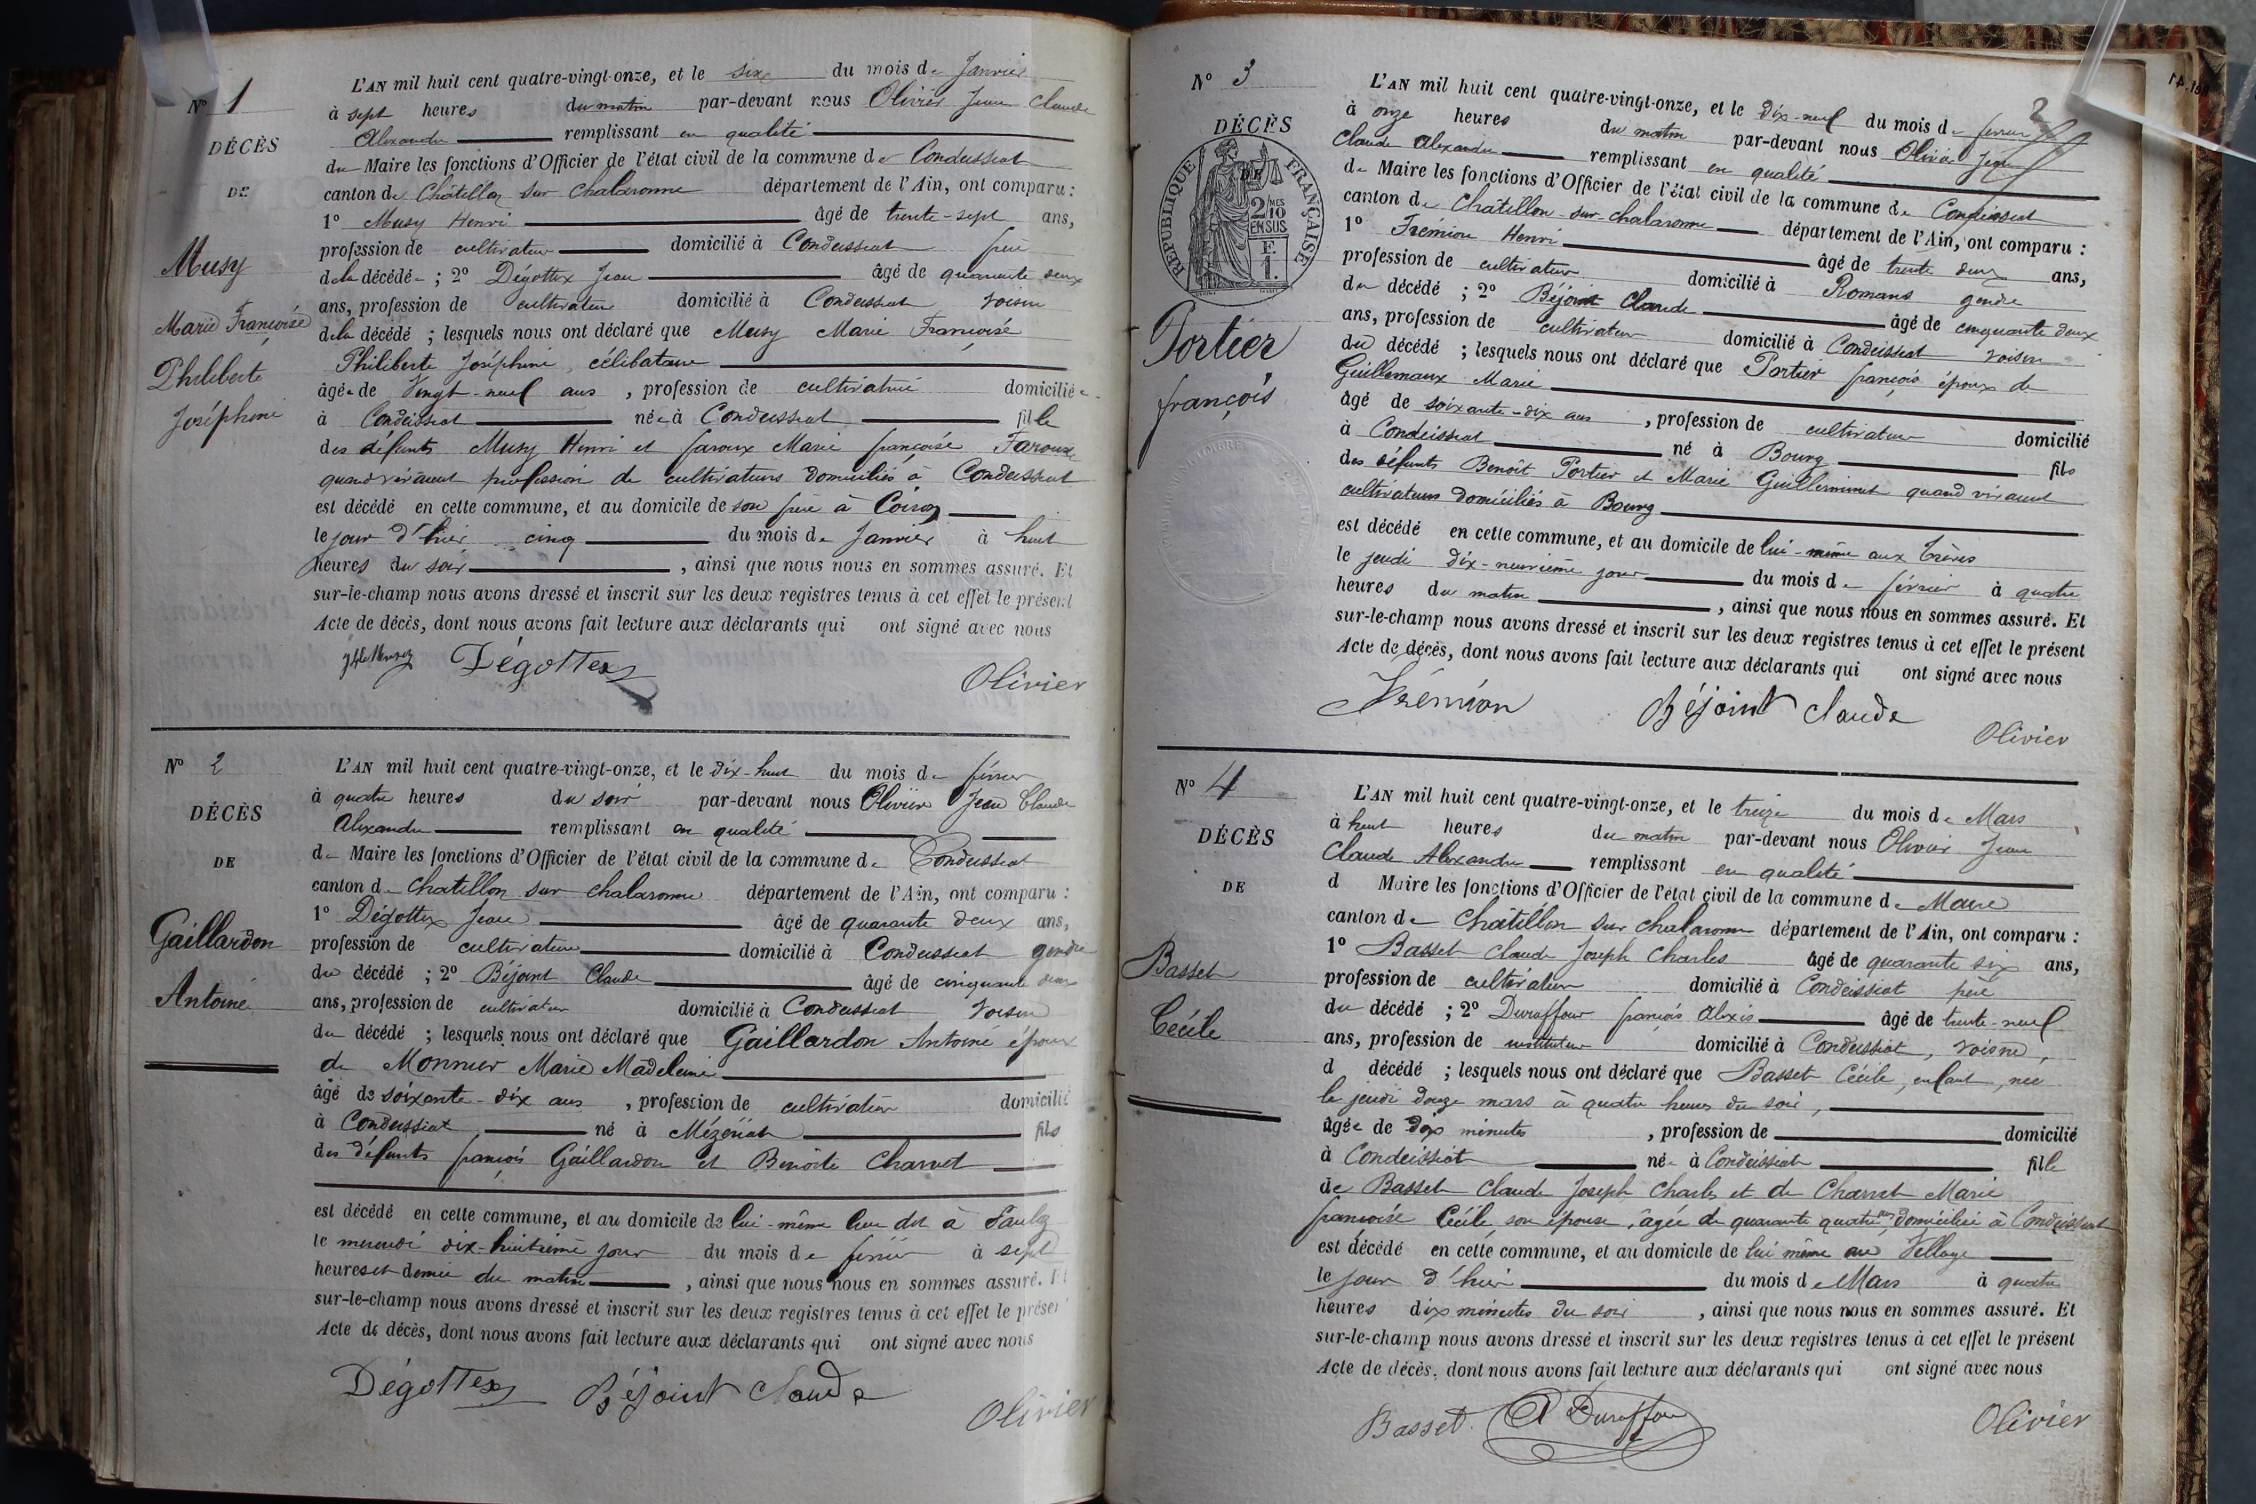 N° 1
DÉCÈS
DE
Musy
Marie Françoise
Philiberte
Joséphine
L'AN mil huit cent quatre-vingt-onze, et le six du mois de Janvier
à sept heures du matin par-devant nous Olivier Jean Claude
Alexandre remplissant en qualité
du Maire les fonctions d'Officier de l'état civil de la commune de Condeissiat
canton de Châtillon sur Chalaronne département de l'Ain, ont comparu :
1° Musy Henri âgé de trente-sept ans,
profession de cultivateur domicilié à Condeissiat frère
de la décédée ; 2° Dégottex Jean âgé de quarante deux
ans, profession de cultivateur domicilié à Condeissiat voisin
de la décédé ; lesquels nous ont déclaré que Musy Marie Françoise
Philiberte Joséphine, célibataire
âgée de Vingt-neuf ans, profession de cultivatrice domiciliée
à Condeissiat née à Condeissiat fille
des défunts Musy Henri et faroux Marie françoise Faroux
quand vivaient profession de cultivateurs domiciliés à Condeissiat
est décédé en cette commune, et au domicile de son frère à
le jour d'hier cinq du mois de Janvier à huit
heures du soir, ainsi que nous nous en sommes assuré. Et
sur-le-champ nous avons dressé et inscrit sur les deux registres tenus à cet effet le présent
Acte de décès, dont nous avons fait lecture aux déclarants qui ont signé avec nous
Dégottex
Olivier
N° 2
DÉCÈS
DE
Gaillardon
Antoine
L'AN mil huit cent quatre-vingt-onze, et le dix-huit du mois de février
à quatre heures du soir par-devant nous Olivier Jean Claude
Alexandre remplissant en qualité
de Maire les fonctions d'Officier de l'état civil de la commune de Condeissiat
canton de Chatillon sur chalaronne département de l'Ain, ont comparu :
1° Dégottex Jean âgé de quarante deux ans,
profession de cultivateur domicilié à Condeissiat gendre
du décédé ; 2° Béjoint Claude âgé de cinquante deux
ans, profession de cultivateur domicilié à Condeissiat voisin
du décédé ; lesquels nous ont déclaré que Gaillardon Antoine époux
de Monnier Marie Madeleine
âgé de soixante-dix ans, profession de cultivateur domicilié
à Condeissiat, né à Mézériat fils
des défunts françois Gaillardon et Benoite Charvet
est décédé en cette commune, et au domicile de lui-même lieu dit à
le mercredi dix-huitième jour du mois de février à sept
heures et demie du matin, ainsi que nous nous en sommes assuré. Et
sur-le-champ nous avons dressé et inscrit sur les deux registres tenus à cet effet le présent
Acte de décès, dont nous avons fait lecture aux déclarants qui ont signé avec nous
Dégottex Béjoint Claude
Olivier
2
N° 3
DÉCÈS
DE
RÉPUBLIQUE FRANÇAISE
2 MES 10 EN SUS
F. 1.
Portier
françois
L'AN mil huit cent quatre-vingt-onze, et le dix-neuf du mois de février
à onze heures du matin par-devant nous Olivier Jean
Claude Alexandre remplissant en qualité
de Maire les fonctions d'Officier de l'état civil de la commune de Condeissiat
canton de Chatillon-sur-chalaronne département de l'Ain, ont comparu :
1° Frémion Henri âgé de trente deux ans,
profession de cultivateur domicilié à Romans gendre
du décédé ; 2° Béjoint Claude âgé de cinquante deux
ans, profession de cultivateur domicilié à Condeissiat voisin
du décédé ; lesquels nous ont déclaré que Portier françois époux de
Guillemaux Marie
âgé de soixante-dix ans, profession de cultivateur domicilié
à Condeissiat né à Bourg fils
des défunts Benoît Portier et Marie Guilleminet quand vivaient
cultivateurs domiciliés à Bourg
est décédé en cette commune, et au domicile de lui-même aux
le jeudi dix-neuvième jour du mois de février à quatre
heures du matin, ainsi que nous nous en sommes assuré. Et
sur-le-champ nous avons dressé et inscrit sur les deux registres tenus à cet effet le présent
Acte de décès, dont nous avons fait lecture aux déclarants qui ont signé avec nous
Frémion Béjoint Claude
Olivier
N° 4
DÉCÈS
DE
Basset
Cécile
L'AN mil huit cent quatre-vingt-onze, et le treize du mois de Mars
à huit heures du matin par-devant nous Olivier Jean
Claude Alexandre remplissant en qualité
d Maire les fonctions d'Officier de l'état civil de la commune de Maire
canton de Châtillon sur chalaronne département de l'Ain, ont comparu :
1° Basset Claude Joseph Charles âgé de quarante six ans,
profession de cultivateur domicilié à Condeissiat père
du décédé ; 2° Duraffour françois Alexis âgé de trente-neuf
ans, profession de instituteur domicilié à Condeissiat, voisin,
d décédé ; lesquels nous ont déclaré que Basset Cécile, enfant, née
le jeudi douze mars à quatre heures du soir,
âgée de dix minutes, profession de domicilié
à Condeissiat née à Condeissiat fille
de Basset Claude Joseph Charles et de Charvet Marie
françoise Cécile, son épouse, âgée de quarante quatre ans, domiciliée à Condeissiat
est décédé en cette commune, et au domicile de lui même au Village
le jour d'hier du mois de Mars à quatre
heures dix minutes du soir, ainsi que nous nous en sommes assuré. Et
sur-le-champ nous avons dressé et inscrit sur les deux registres tenus à cet effet le présent
Acte de décès, dont nous avons fait lecture aux déclarants qui ont signé avec nous
Basset A Duraffour
Olivier